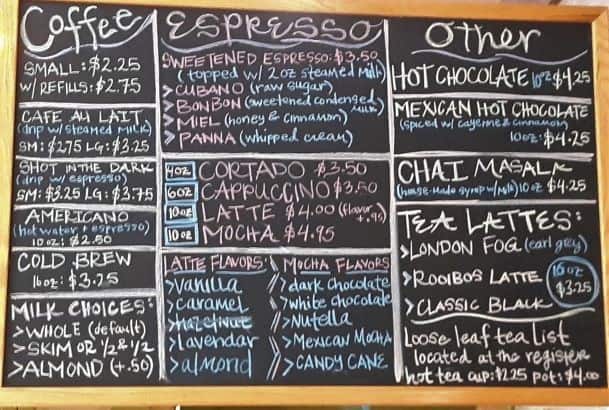 Coffee
SMALL: $2.25
W/ REFILLS: $2.75
CAFE AU LAIT
(drip w/ steamed MILK)
SM: $2.75 LG: $3.25
SHOT IN THE DARK
(drip w/ espresso)
SM: $3.25 LG: $3.75
AMERICANO
(hot water + espresso)
10oz: $2.50
COLD BREW
16oz: $3.75
MILK CHOICES:
>WHOLE (default)
>SKIM OR 1/2 & 1/2
>ALMOND (+.50)
ESPRESSO
SWEETENED ESPRESSO: $3.50
(topped w/ 2oz steamed milk)
>CUBANO (raw sugar)
>BONBON (sweetened condensed milk)
>MIEL (honey & cinnamon)
>PANNA (whipped cream)
4oz CORTADO $3.50
6oz CAPPUCCINO $3.50
10oz LATTE $4.00 (flavor +.95)
10oz MOCHA $4.95
LATTE FLAVORS:
>vanilla
>caramel
>hazelnut
>lavendar
>almond
MOCHA FLAVORS
>dark chocolate
>white chocolate
>Nutella
>Mexican Mocha
>CANDY CANE
Other
HOT CHOCOLATE 10oz $4.25
MEXICAN HOT CHOCOLATE
(spiced w/ cayenne & cinnamon)
10oz: $4.25
CHAI MASALA
(house-made syrup w/ milk) 10oz $4.25
TEA LATTES:
>LONDON FOG (earl grey)
>ROOIBOS LATTE
>CLASSIC BLACK
16oz
$3.25
Loose leaf tea list
located at the register
hot tea cup: $2.25 pot: $4.00